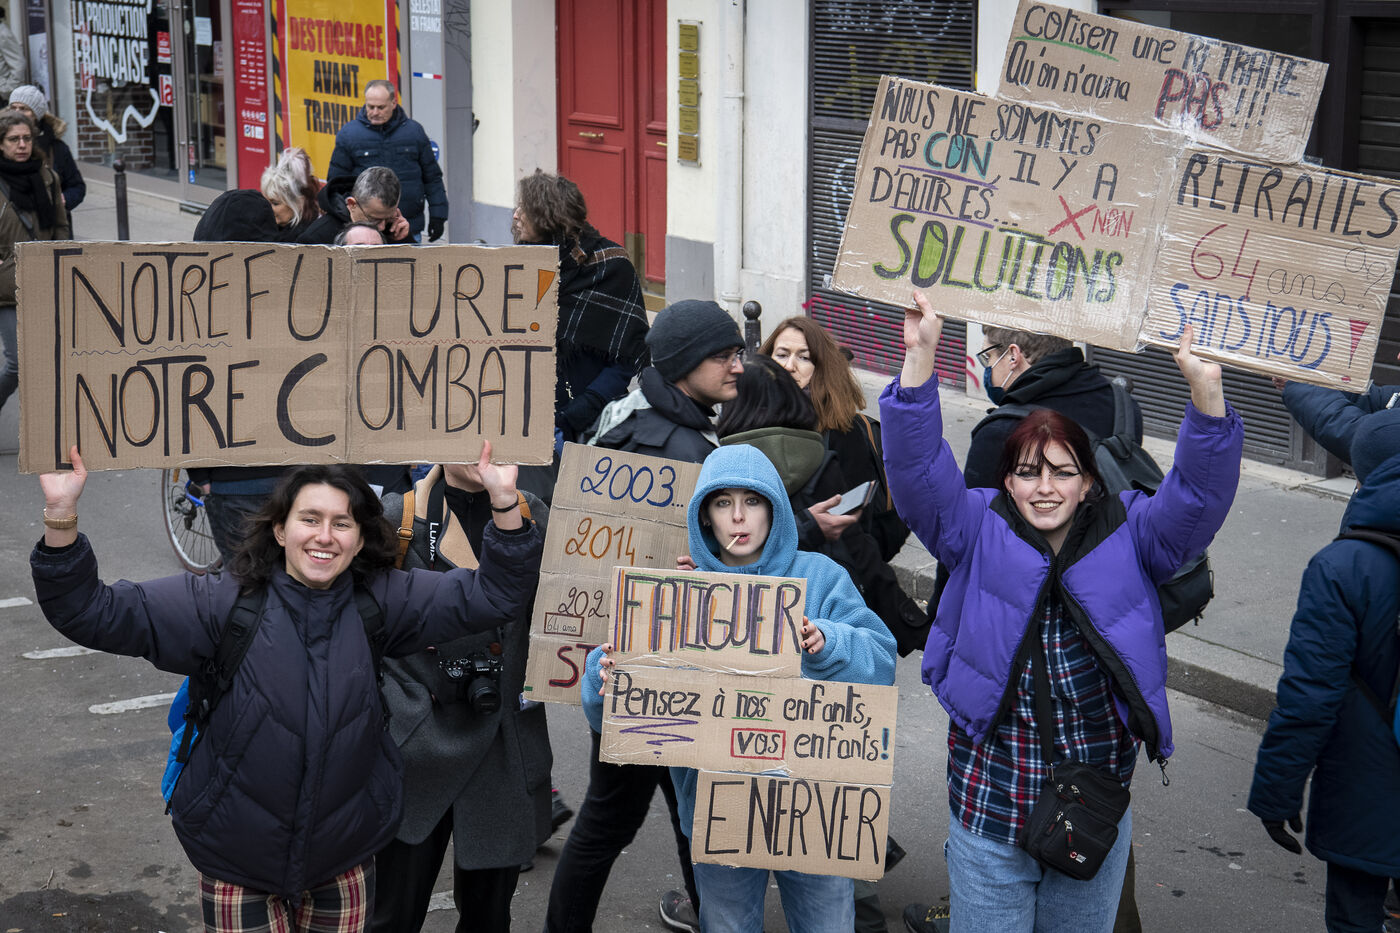 LA PRODUCTION
FRANÇAISE
DESTOCKAGE
AVANT
TRAVAUX
EN FRANCE
[NOTRE FUTURE!
NOTRE COMBAT
2003...
2014...
202
64 ans
ST
FATIGUER
Pensez à nos enfants,
vos enfants!
ENERVER
Cotiser une RETRAITE
Qu'on n'aura PAS!!!
NOUS NE SOMMES
PAS CON, IL Y A
D'AUTRES...
X NON
SOLUTIONS
RETRAITES
à
64 ans?
SANS NOUS!
LUMIX